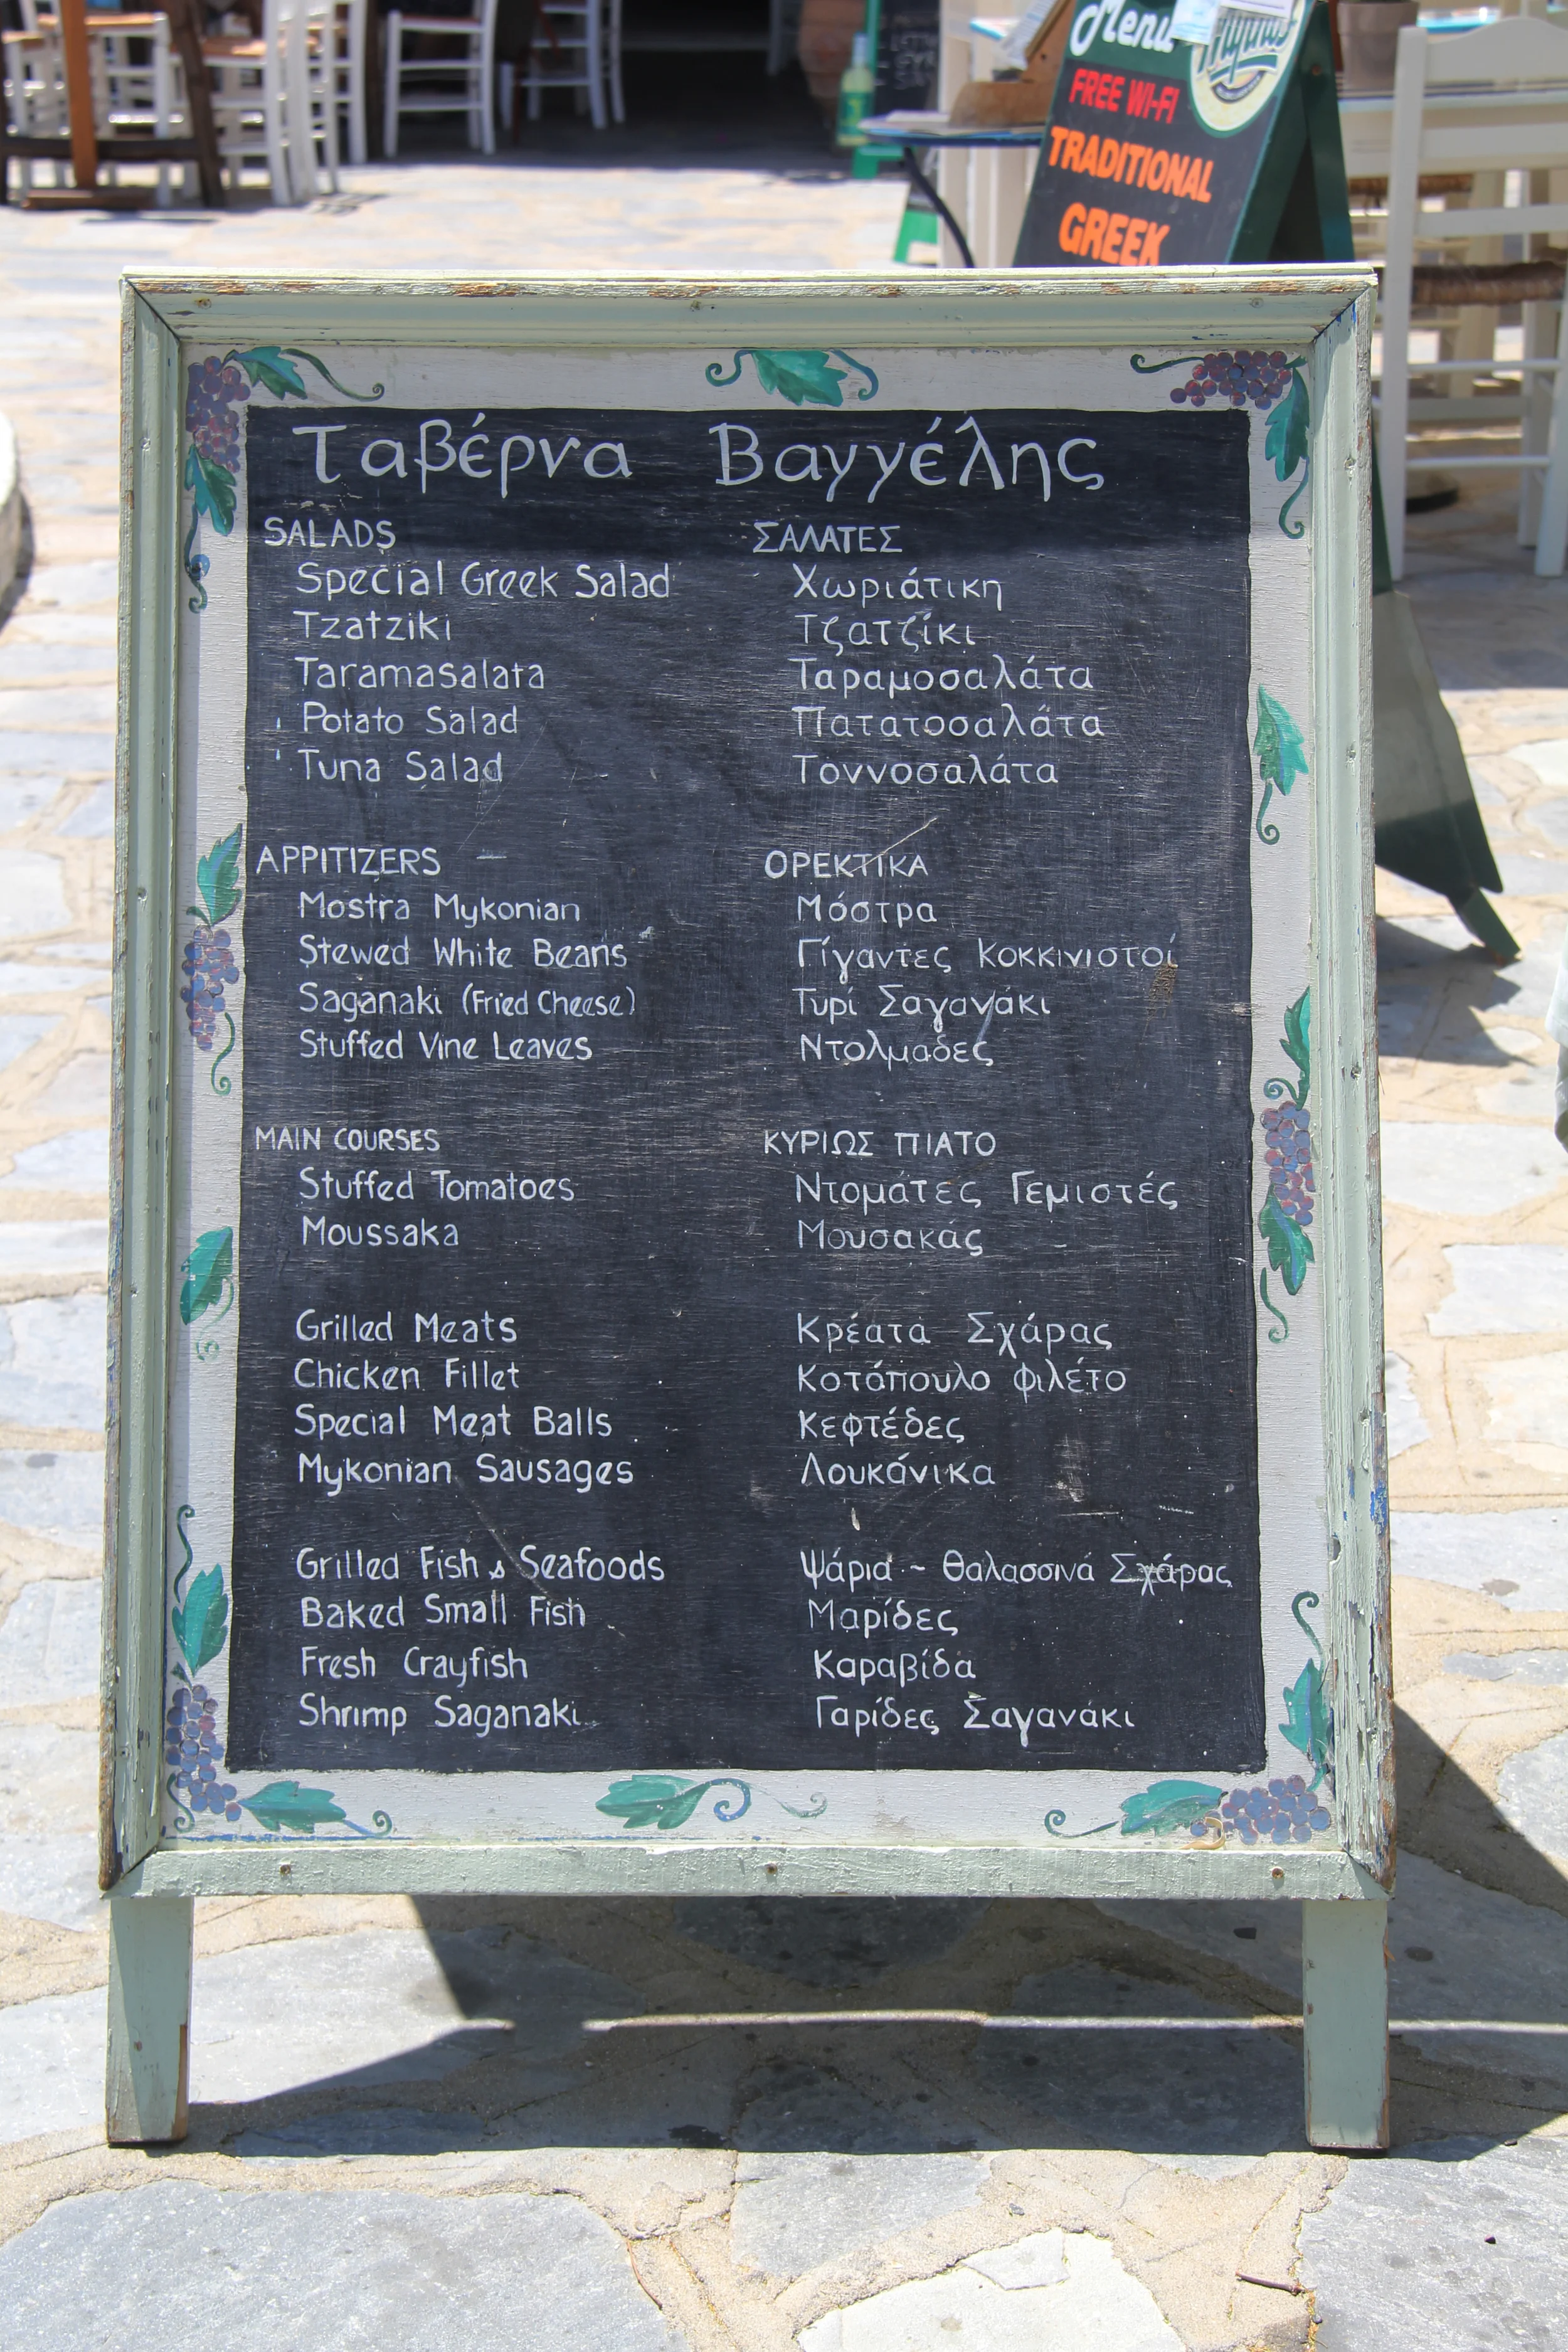 Menu
FREE WI-FI
TRADITIONAL
GREEK
Ταβέρνα Βαγγέλης
SALADS ΣΑΛΑΤΕΣ
Special Greek Salad Χωριάτικη
Tzatziki Τζατζίκι
Taramasalata Ταραμοσαλάτα
Potato Salad Πατατοσαλάτα
Tuna Salad Τοννοσαλάτα
APPITIZERS ΟΡΕΚΤΙΚΑ
Mostra Mykonian Μόστρα
Stewed White Beans Γίγαντες κοκκινιστοί
Saganaki (Fried Cheese) Τυρί Σαγανάκι
Stuffed Vine Leaves Ντολμαδες
MAIN COURSES ΚΥΡΙΩΣ ΠΙΑΤΟ
Stuffed Tomatoes Ντομάτες Γεμιστές
Moussaka Μουσακάς
Grilled Meats Κρέατα Σχάρας
Chicken Fillet Κοτόπουλο φιλέτο
Special Meat Balls Κεφτέδες
Mykonian Sausages Λουκάνικα
Grilled Fish & Seafoods Ψάρια ~ Θαλασσινά Σχάρας
Baked Small Fish Μαρίδες
Fresh Crayfish Καραβίδα
Shrimp Saganaki Γαρίδες Σαγανάκι